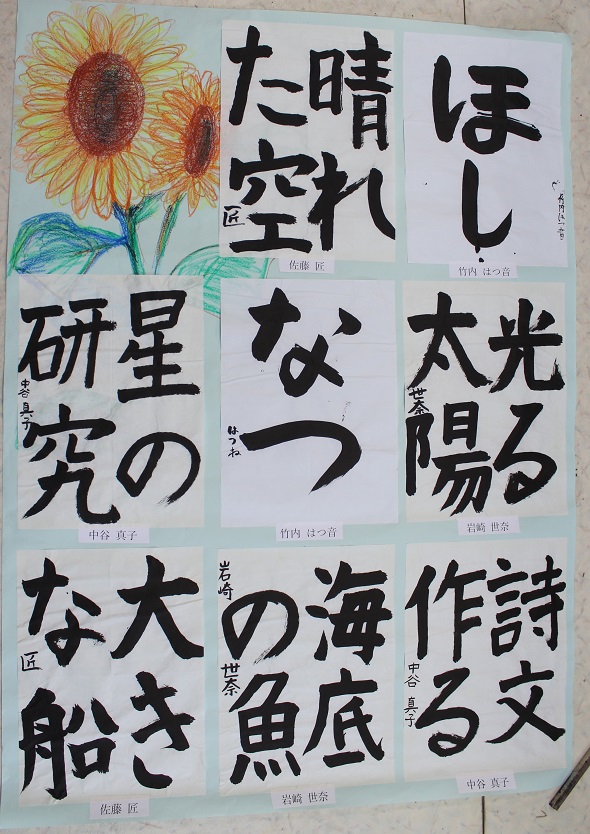 ほし
竹内 はつ音
晴れ
た空
匠
佐藤 匠
光る
太陽
世奈
岩崎 世奈
なつ
はつね
竹内 はつ音
星の
研究
中谷 真子
中谷 真子
詩文
作る
中谷 真子
中谷 真子
海底
の魚
岩崎 世奈
岩崎 世奈
大き
な船
匠
佐藤 匠